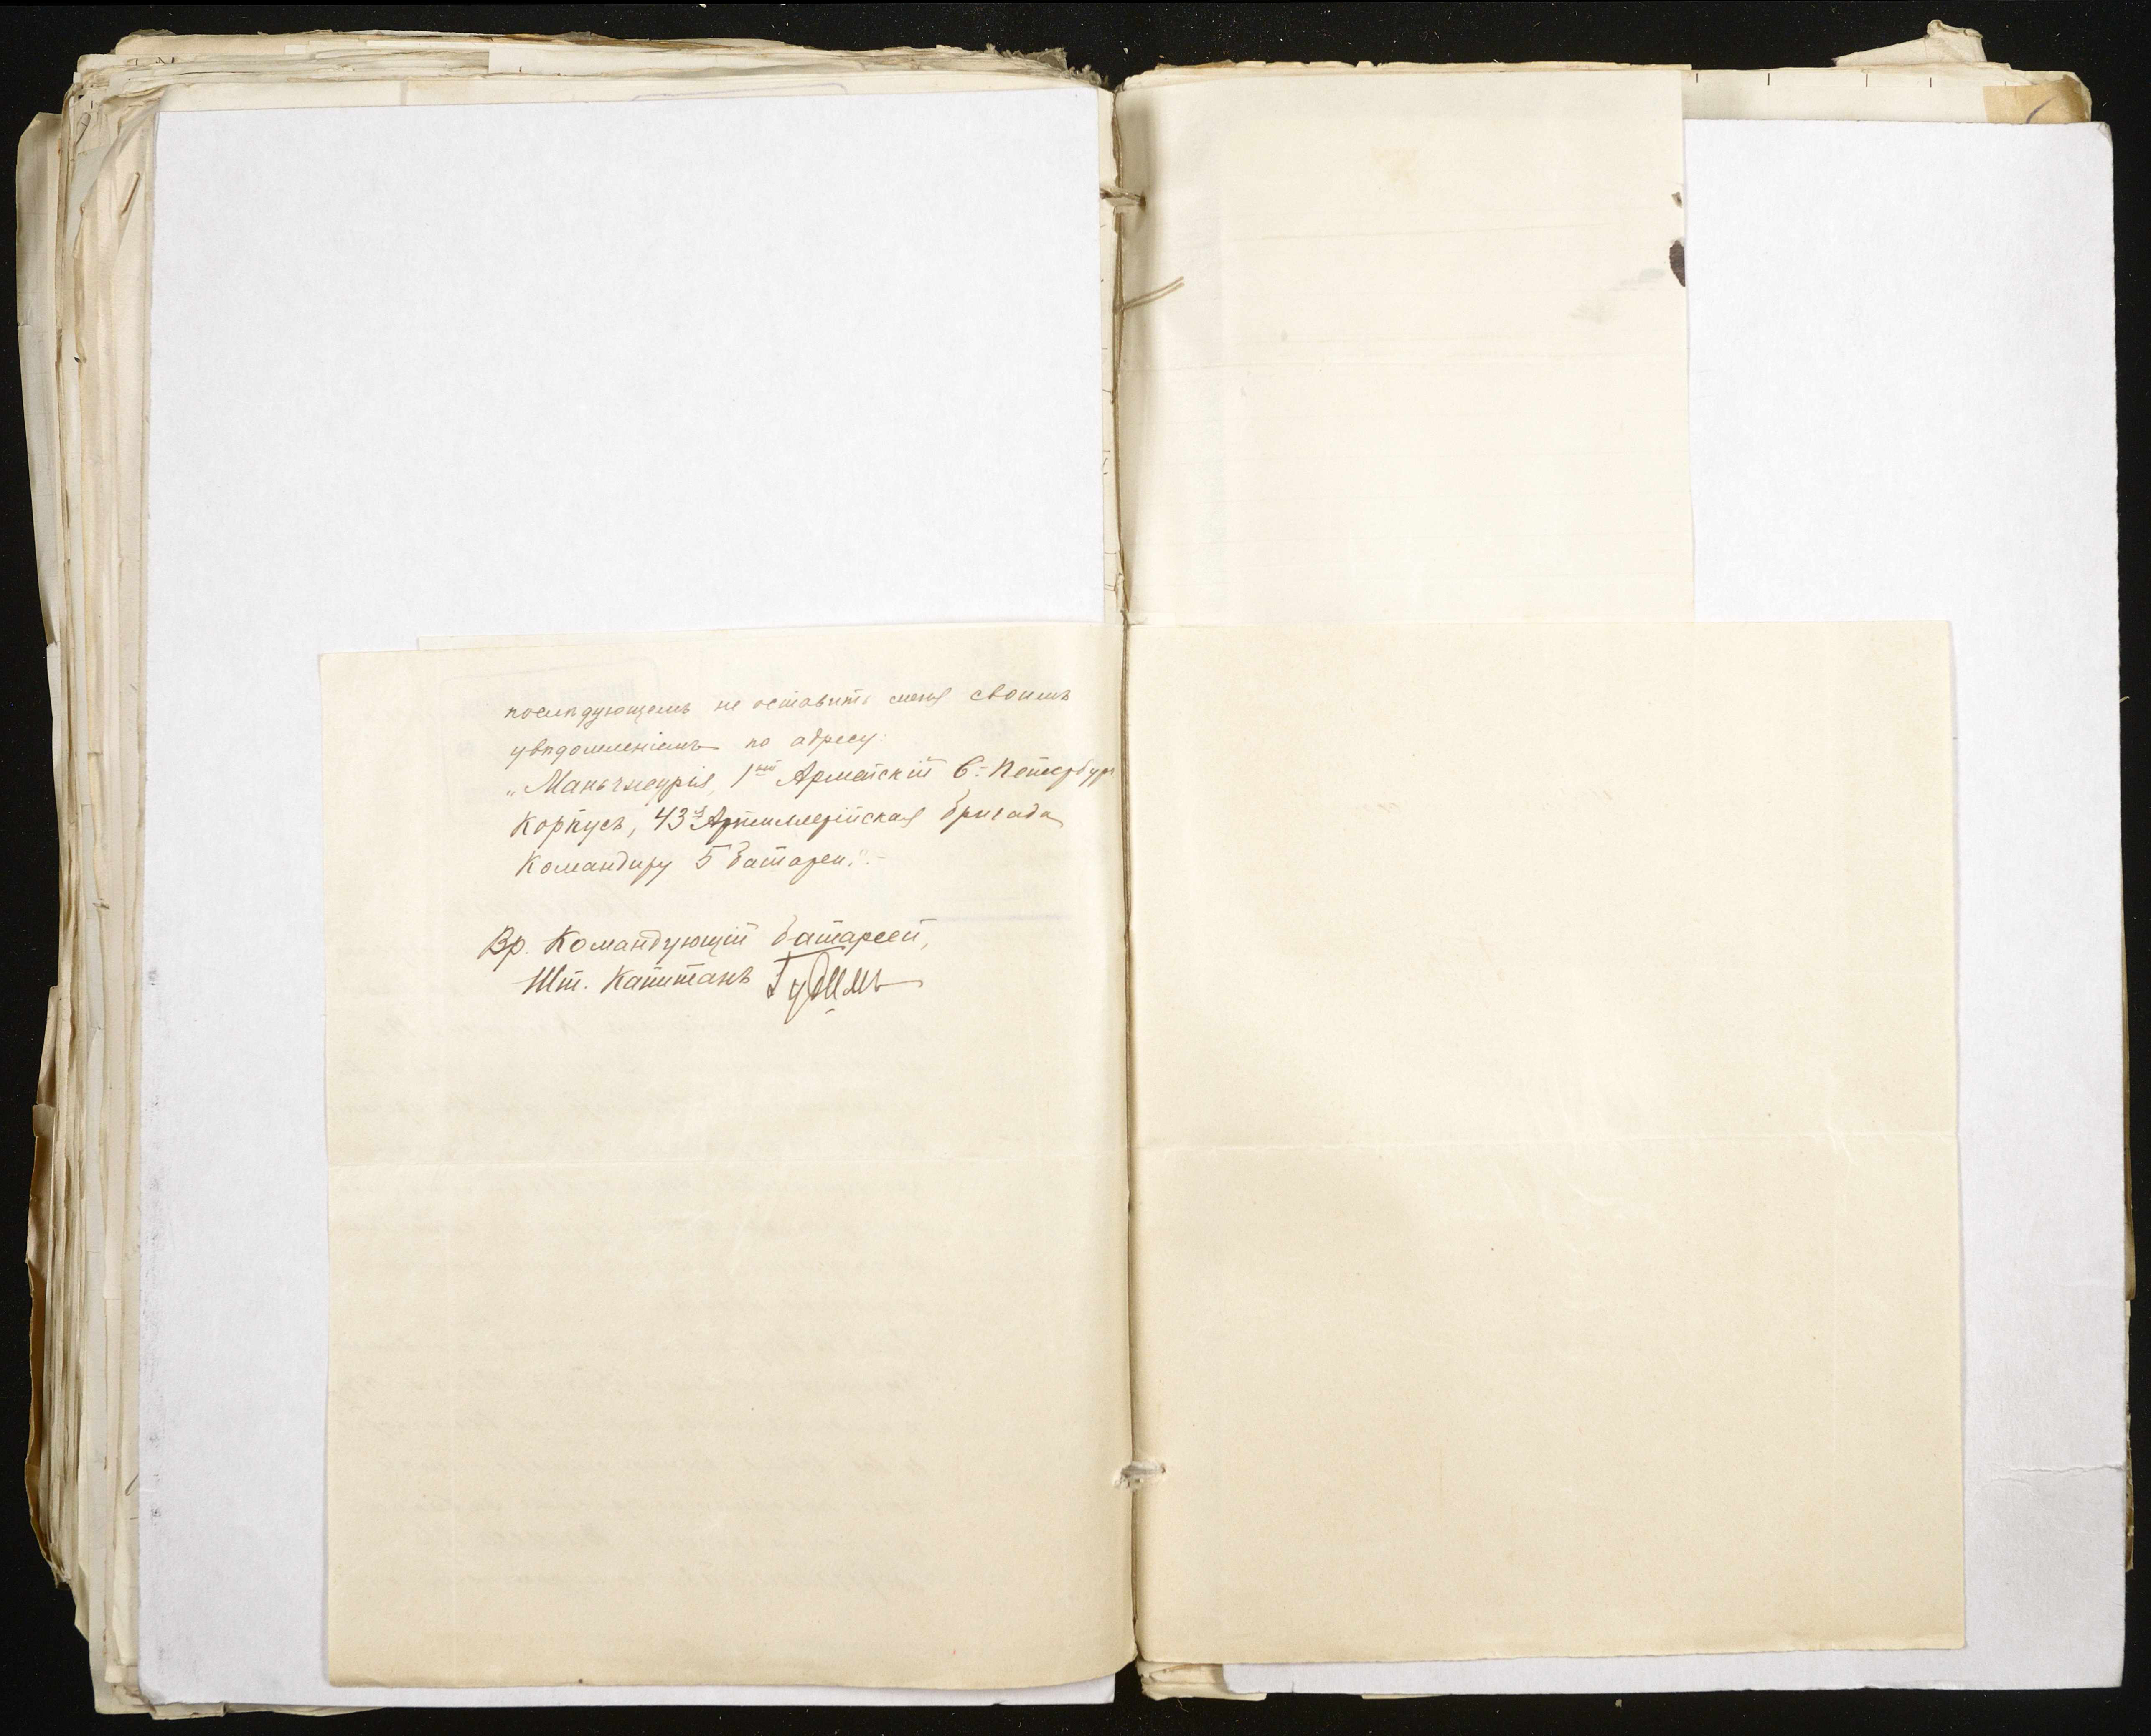 послѣдующемъ не оставить меня своимъ
увѣдомленіемъ по адресу:
„Маньчжурія, 1ый Армейскій С=Петербург
Корпусъ, 43я Артиллерійская бригада
Командиру 5 батареи.".-
Вр. Командующій батареей,
Шт. Капитанъ